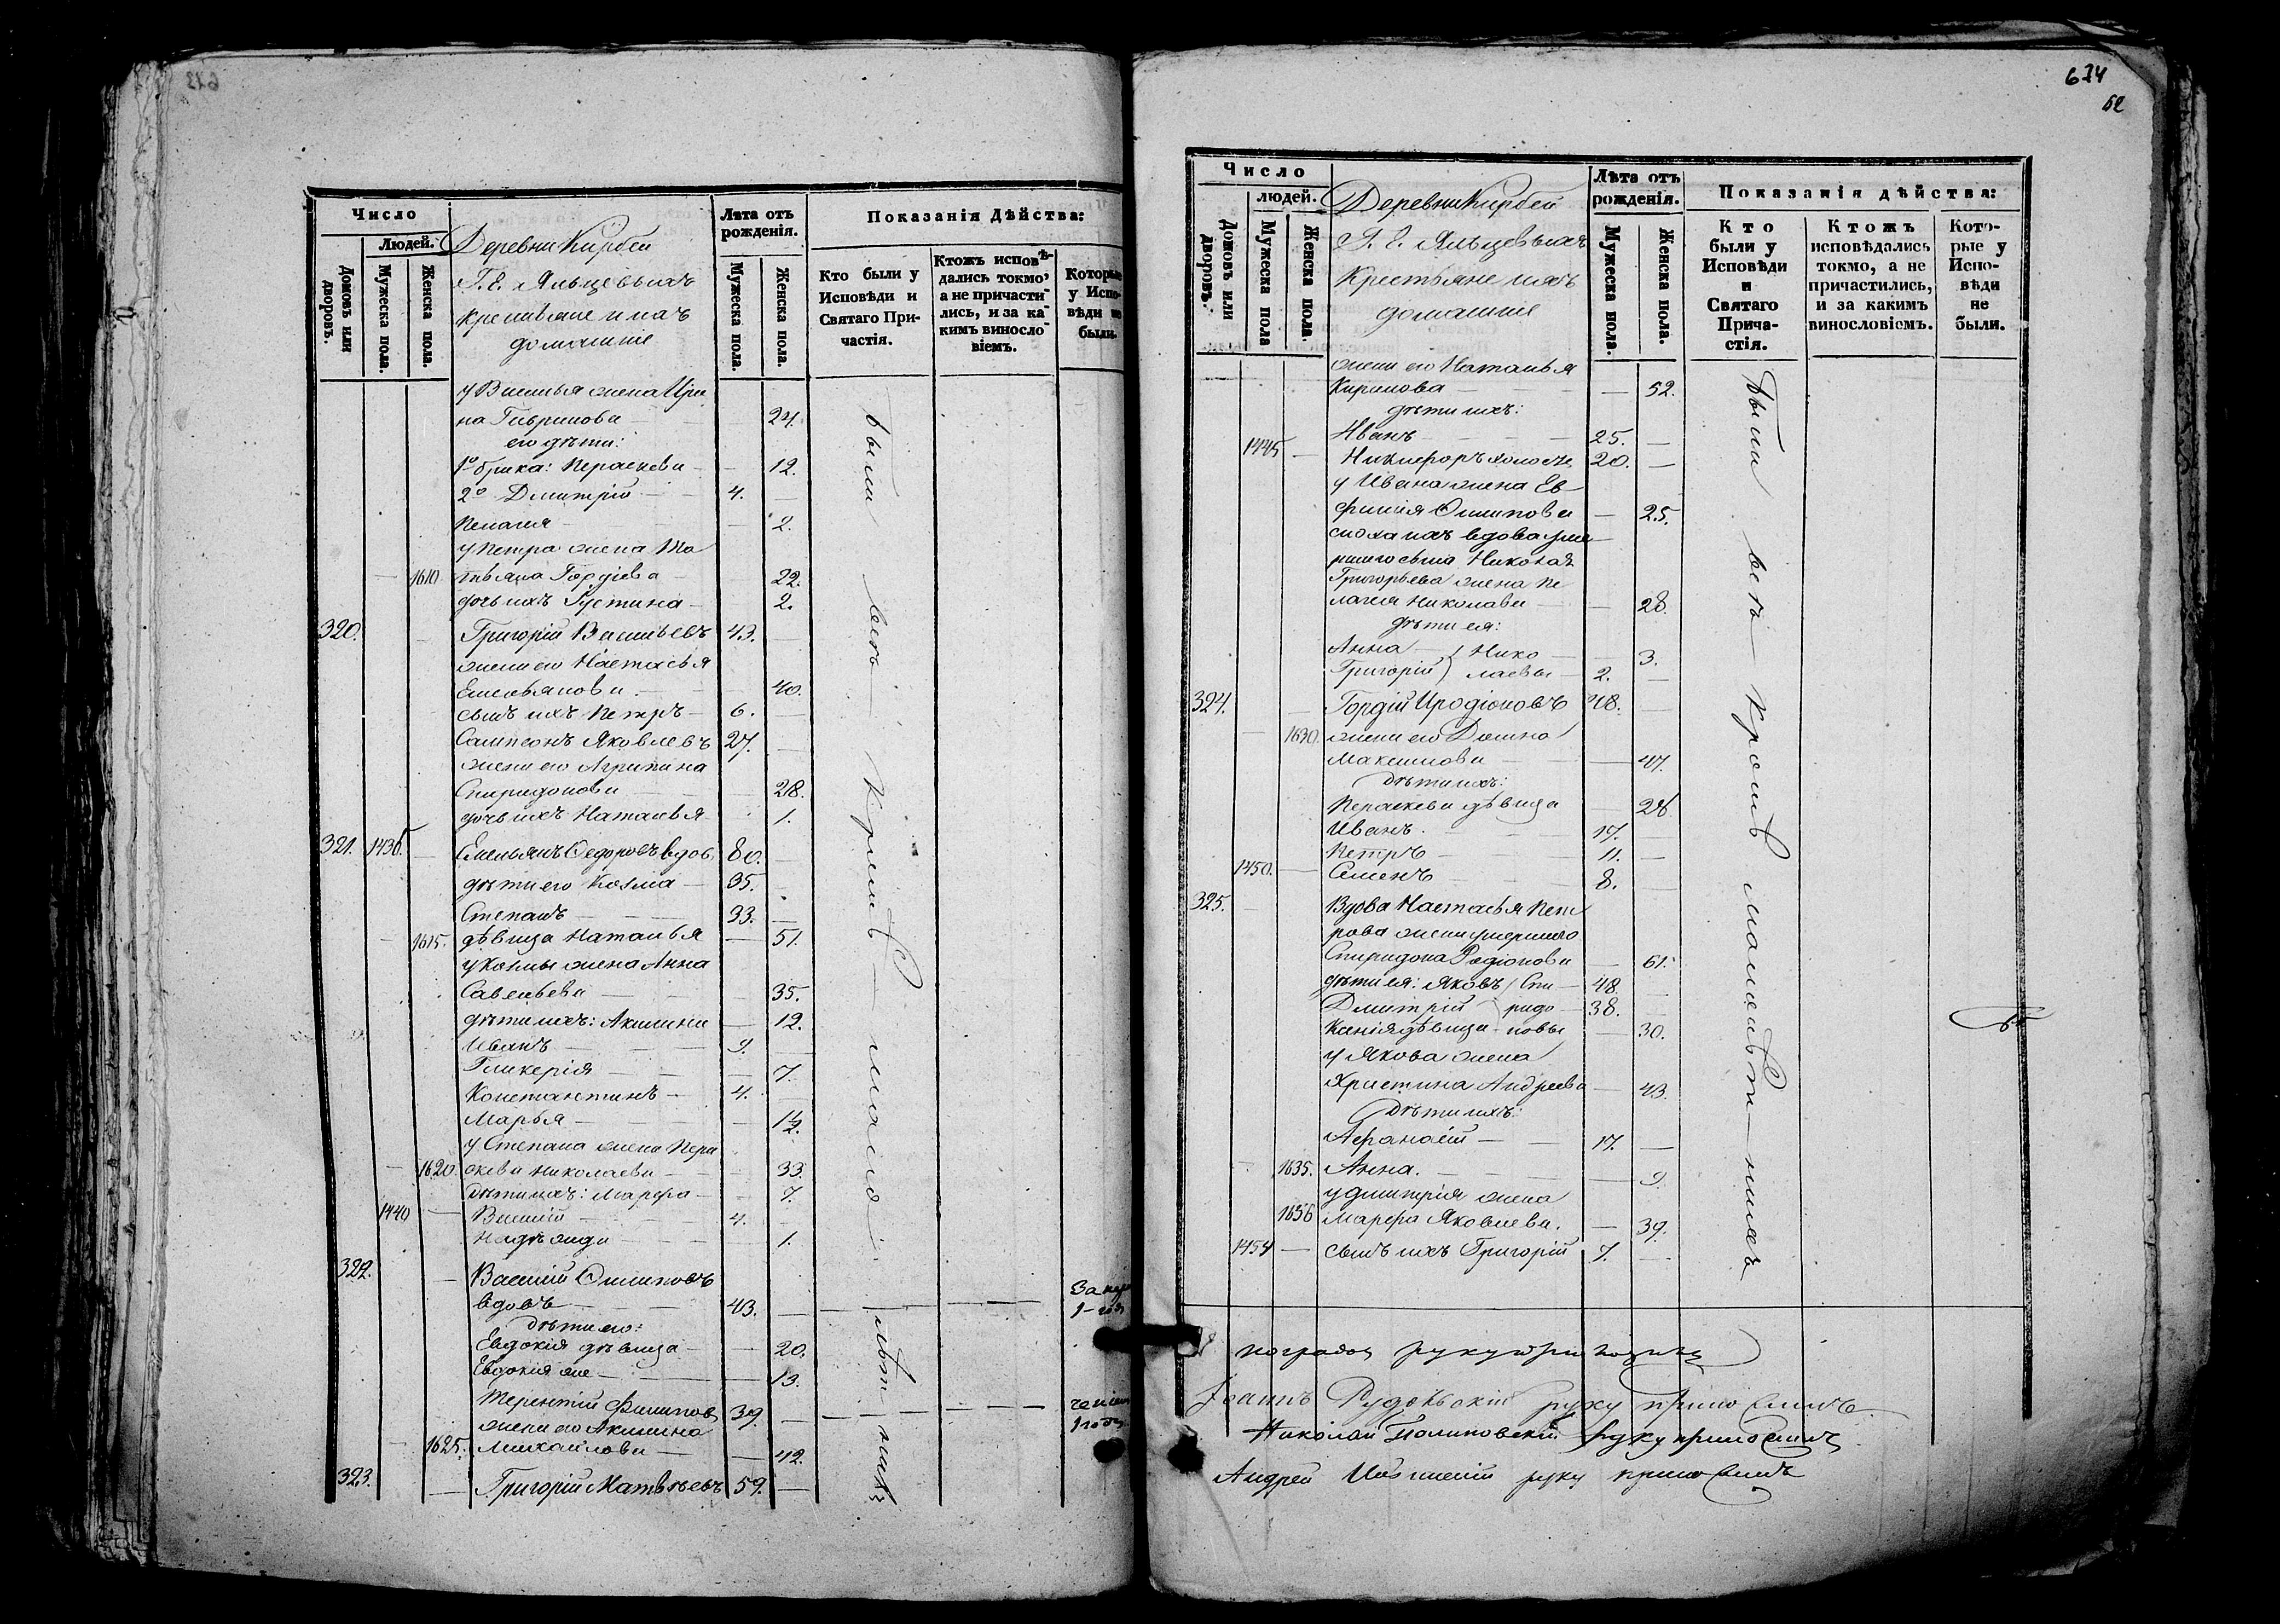 Число
Людей.
Домовъ или дворовъ.
Мужеска пола.
Женска пола.
Деревни Кирбеи
Г. Е. Яльцевыхъ
крестьяне и ихъ
домашніе
Лѣта отъ рожденія.
Мужеска пола.
Женска пола.
Показанія Дѣйства:
Кто были у Исповѣди и Святаго Причастія.
Ктожъ исповѣдались токмо, а не причастились, и за какимъ винословіемъ.
Которые у Исповѣди не были.
у Василья жена Ири
на Гаврилова — 24.
его дѣти:
1го брака: Параскева — 12.
2го Дмитрій — 4.
Пелагея — 2.
у Петра жена Та
1610 тьяна Гордіева — 22.
дочь ихъ Густина — 2.
320. Григорій Васильевъ 43.
жена его Настасья
Емельянова — 40.
сынъ ихъ Петръ — 6.
Сампсонъ Яковлевъ 27.
жена его Агрипина
Спиридонова — 28.
дочь ихъ Наталья 1.
321. 1436. Емельянъ Федоровъ вдов. 80.
дѣти его Козма — 35.
Степанъ — 33.
1615. дѣвица Наталья — 51.
у Козмы жена Анна
Савельева — 35.
дѣти ихъ: Акилина — 12.
Иванъ — 9.
Гликерія — 7.
Константинъ — 4.
Марья —
у Степана жена Пара
1620. скева Николаева — 33.
дѣти ихъ: Марфа — 7.
1440 Василій — 4.
Надѣжда — 1.
322. Василій Филиповъ
вдовъ — 43.
дѣти его:
Евдокія дѣвица — 20.
Евдокія же — 13.
Терентій Филиповъ 39.
жена его Акилина
1625. Михайлова — 42.
323. Григорій Матвѣевъ 59.
были всѣ — кромѣ — мало — лѣтнихъ
674
62
Число
людей.
Домовъ или дворовъ.
Мужеска пола
Женска пола.
Деревни Кирбеи
Г. Е. Яльцевыхъ
Крестьяне ихъ
домашніе
Лѣта отъ рожденія.
Мужеска пола.
Женска пола.
Показанія дѣйства:
Кто были у Исповѣди и Святаго Причастія.
Ктожъ исповѣдались токмо, а не причастились, и за какимъ винословіемъ.
Которые у Исповѣди не были.
жена его Наталья
Кирилова — 52.
дѣти ихъ:
1445 Иванъ — 25.
Никифоръ холостъ 20.
у Ивана жена Ев
фимія Филипова — 25.
сноха ихъ вдова уме
ршаго сына Николая
Григорьева жена Пе
лагея Николаева — 28.
дѣти ея:
Анна } Нико — 3.
Григорій } лаевы — 2.
324. Гордій Иродіоновъ 48.
1630. жена его Домна
Максимова — 47.
дѣти ихъ:
Параскева дѣвица
Иванъ. — 17.
Петръ — 11.
1450. Семенъ — 8.
325. Вдова Настасья Пет
рова жена умершаго
Спиридона Родіонова — 61.
дѣти ея: Яковъ } Спи — 48.
Дмитрій } ридо — 38.
Ксенія дѣвица } новы — 30.
у Якова жена
Христина Андреева — 43.
Дѣти ихъ:
Афанасій — 17.
1635. Анна. — 9.
у Дмитрія жена
1636 Марфа Яковлева. — 39.
1454 — сынъ ихъ Григорій 7.
были всѣ — кромѣ малолѣт — нихъ
Іоаннъ Рудовскій руку приложилъ
Николай Полиновскій руку приложилъ
Андрей руку приложилъ